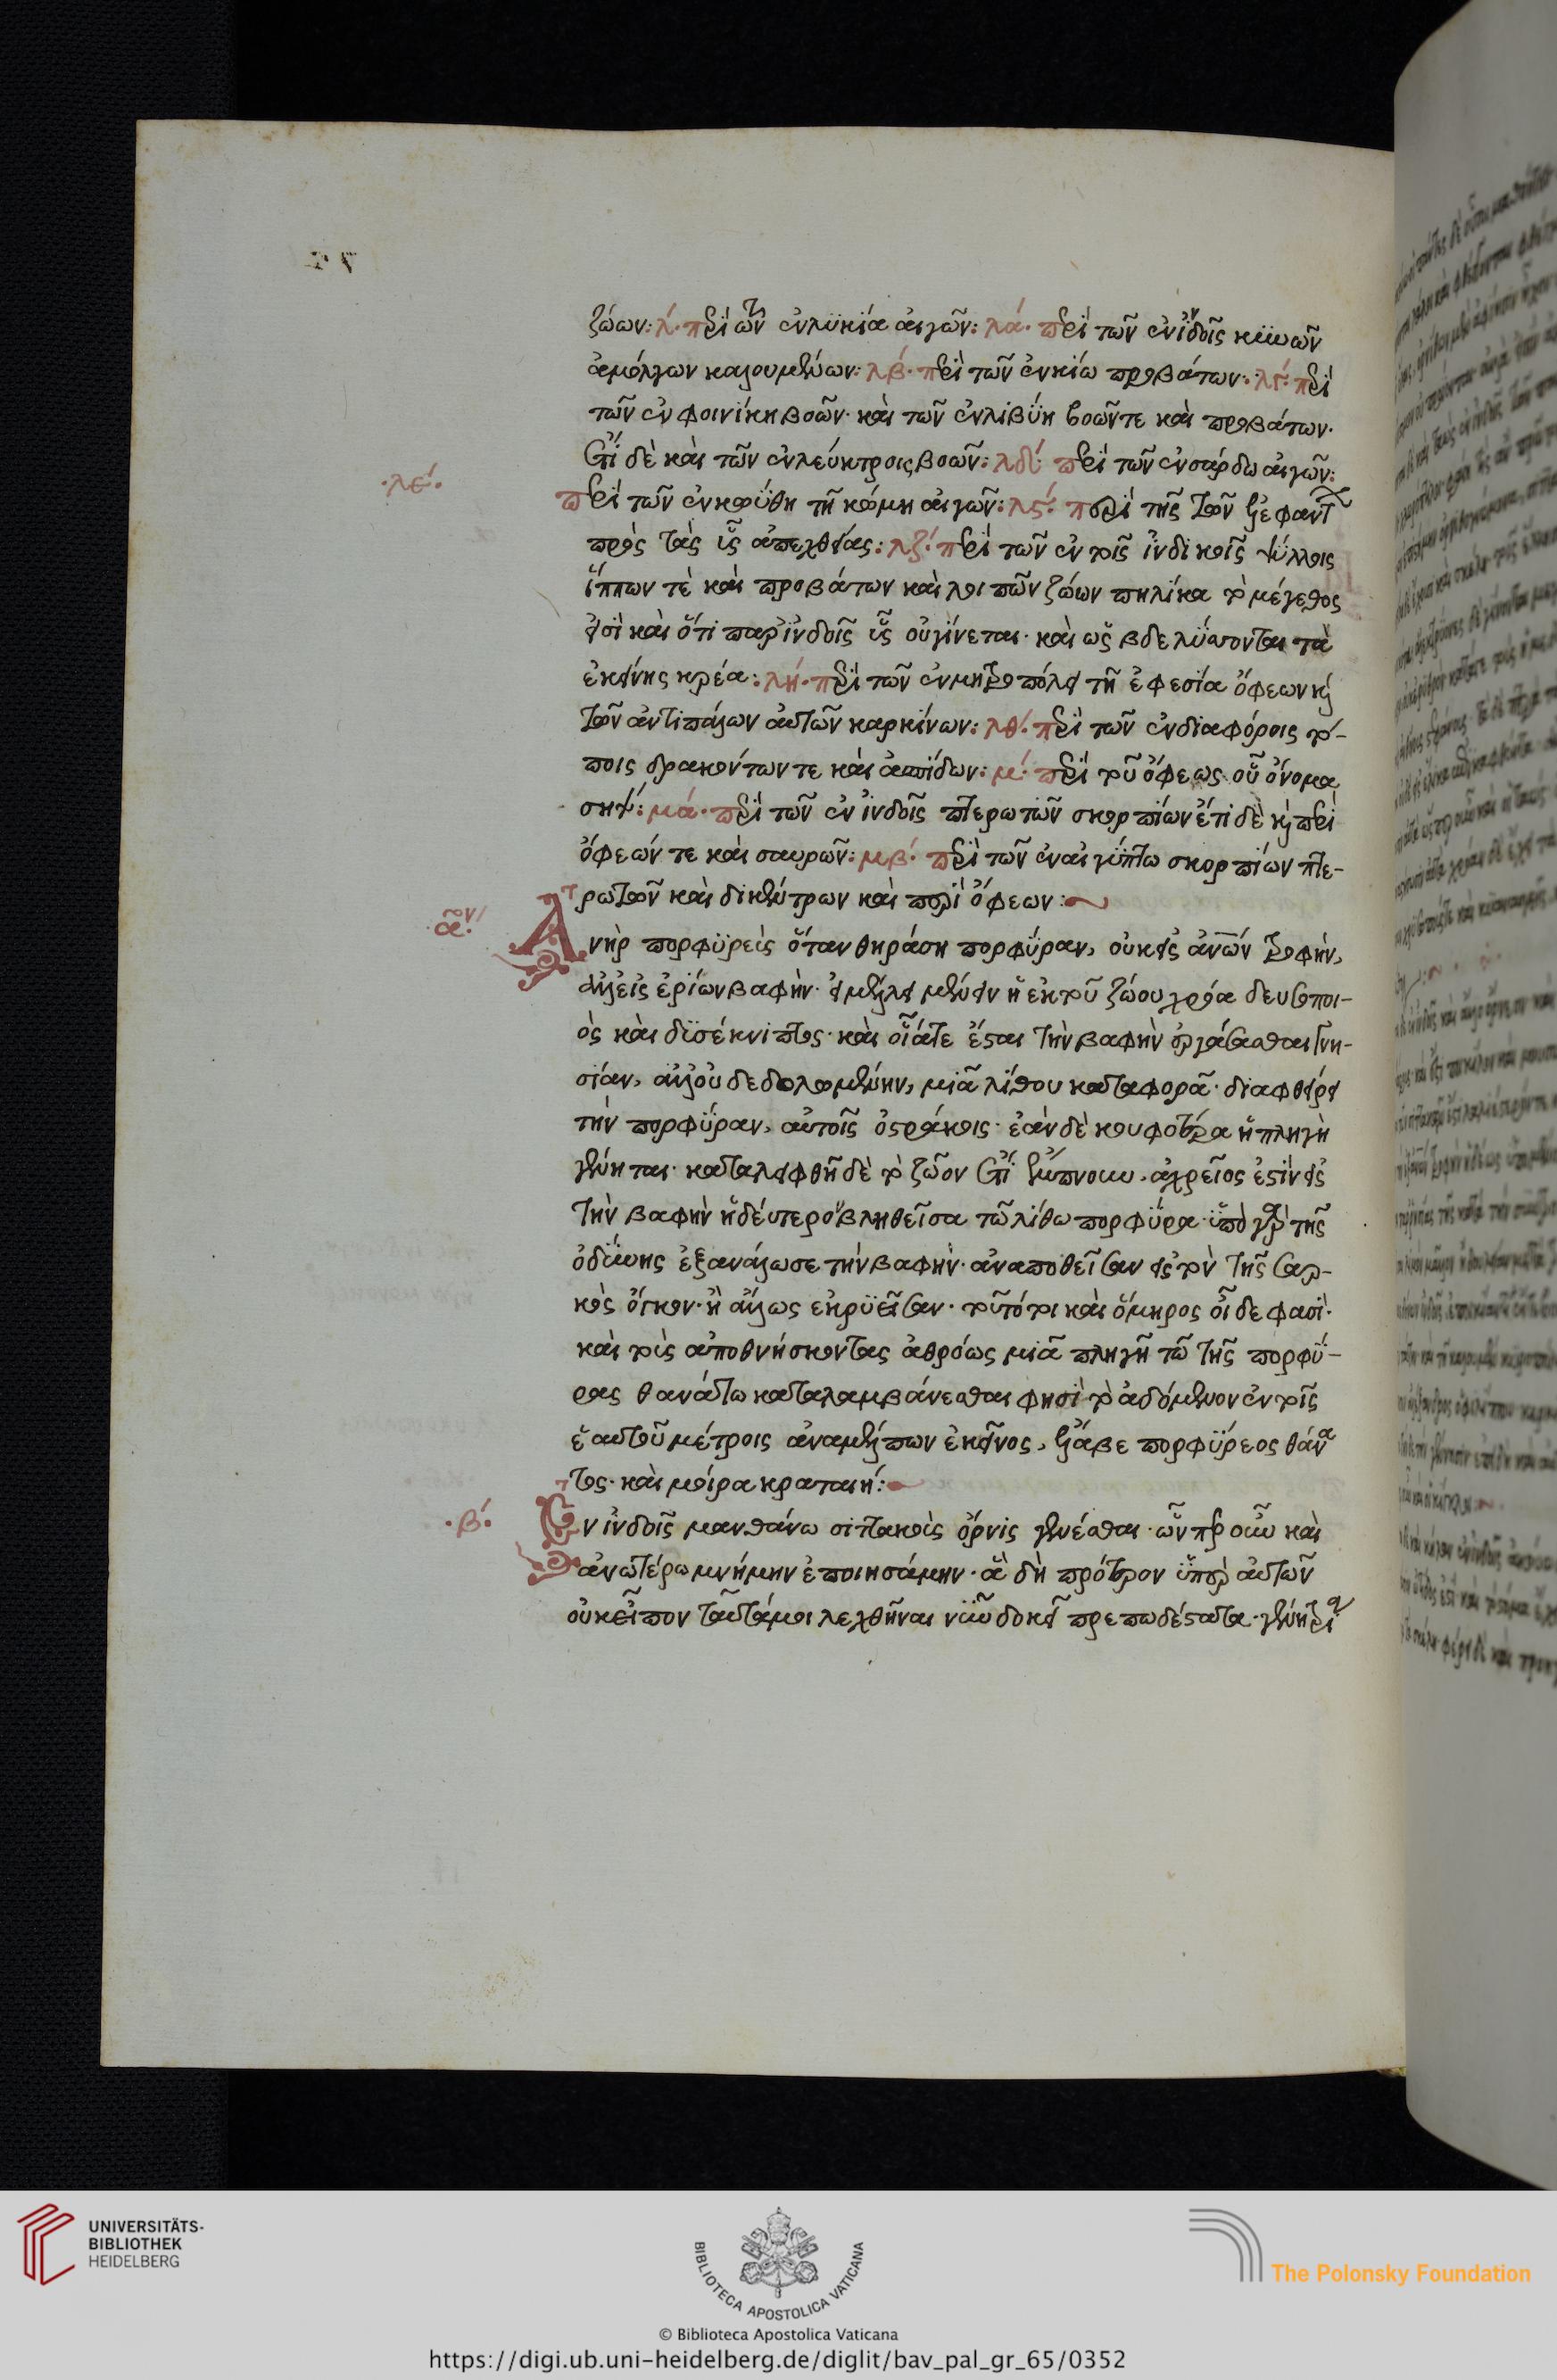 ζώων: λ΄· περὶ τῶν ἐν λυκία αἰγῶν: λα΄· περὶ τῶν ἐν ἰνδοῖς κυνῶν
ἀμόλγων καλουμένων: λβ΄· περὶ τῶν ἐν κίω προβάτων: λγ΄· περὶ
τῶν ἐν φοινίκη βοῶν· καὶ τῶν ἐν λιβύη βοῶν τε καὶ προβάτων·
ἔτι δὲ καὶ τῶν ἐν λεύκτροις βοῶν: λδ΄· περὶ τῶν ἐν σάρδω αἰγῶν:
·λε΄·
περὶ τῶν ἐν κφύθη τῆ κώμη αἰγῶν: λς΄· περὶ τῆς τῶν ἐλεφάντων
πρὸς τὰς ὗς ἀπεχθείας: λζ΄· περὶ τῶν ἐν τοῖς ἰνδικοῖς ψύλλοις
ἵππων τὲ καὶ προβάτων καὶ λοιπῶν ζώων πηλίκα τὸ μέγεθος
εἰσὶ καὶ ὅτι παρ' ἰνδοῖς ὗς οὐ γίνεται· καὶ ὡς βδελύττονται τὰ
ἐκείνης κρέα: λη΄· περὶ τῶν ἐν μητροπόλει τῆ ἐφεσία ὄφεων καὶ
τῶν ἀντιπάλων αὐτῶν καρκίνων: λθ΄· περὶ τῶν ἐν διαφόροις τό-
ποις δρακόντων τε καὶ ἀσπίδων: μ΄· περὶ τοῦ ὄφεως οὗ ὄνομα
σηψ: μα΄· περὶ τῶν ἐν ἰνδοῖς πτερωτῶν σκορπίων ἔτι δὲ καὶ περὶ
ὄφεών τε καὶ σαυρῶν: μβ΄· περὶ τῶν ἐν αἰγύπτω σκορπίων πτε-
ρωτῶν καὶ δικέντρων καὶ περὶ ὄφεων:
α΄·
Ἀνὴρ πορφυρεὺς ὅταν θηράση πορφύραν, οὐκ εἰς ἀνῶν τροφὴν,
ἀλλ' εἰς ἐρίων βαφὴν· εἰ μέλλει μένειν ἡ ἐκ τοῦ ζώου χρόα δευσοποι-
ὸς καὶ δυσέκνιπτος· καὶ οἵα τε ἔσται τὴν βαφὴν ἐργάσασθαι γνη-
σίαν, ἀλλ' οὐ δεδολωμένην, μιᾶ λίθου καταφορᾶ· διαφθείρει
τὴν πορφύραν, αὐτοῖς ὀστράκοις· ἐὰν δὲ κουφοτέρα ἡ πληγὴ
γένηται· καταλειφθῆ δὲ τὸ ζῶον ἔτι ἔμπνουν, ἀχρεῖος ἐστὶν εἰς
τὴν βαφὴν ἡ δεύτερον βληθεῖσα τῶ λίθω πορφύρα· ὑπὸ γὰρ τῆς
ὀδύνης ἐξανάλωσε τὴν βαφὴν· ἀναποθεῖσαν εἰς τὸν τῆς σαρ-
κὸς ὄγκον· ἢ ἄλλως ἐκρυεῖσαν· τοῦτό τοι καὶ ὅμηρος οἶδε φασὶ·
καὶ τοὺς ἀποθνήσκοντας ἀθρόως μιᾶ πληγῆ τῶ τῆς πορφύ-
ρας θανάτω καταλαμβάνεσθαι φησὶ· τὸ ἀδόμενον ἐν τοῖς
ἑαυτοῦ μέτροις ἀναμέλπων ἐκεῖνος, ἔλαβε πορφύρεος θάνα
τος· καὶ μοίρα κραταιή:
·β΄·
Ἐν ἰνδοῖς μανθάνω σιττακοὺς ὄρνις γενέσθαι· ὧνπερ οὖν καὶ
ἀνωτέρω μνήμην ἐποιησάμην· ἃ δὴ πρότερον ὑπὲρ αὐτῶν
οὐκ εἶπον ταῦτά μοι λεχθῆναι νῦν δοκεῖ πρεπωδέστατα· γένη τρία
UNIVERSITÄTS-
BIBLIOTHEK
HEIDELBERG
BIBLIOTECA APOSTOLICA VATICANA
The Polonsky Foundation
© Biblioteca Apostolica Vaticana
https://digi.ub.uni-heidelberg.de/diglit/bav_pal_gr_65/0352